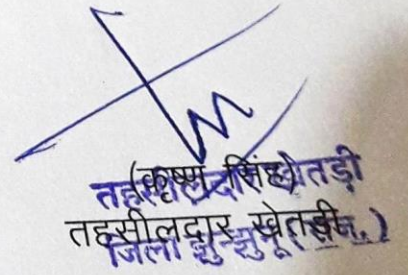 (कृष्ण सिंह)
तहसीलदार खेतड़ी
तहसीलदार खेतड़ी
जिला झुन्झुनू (राज.)